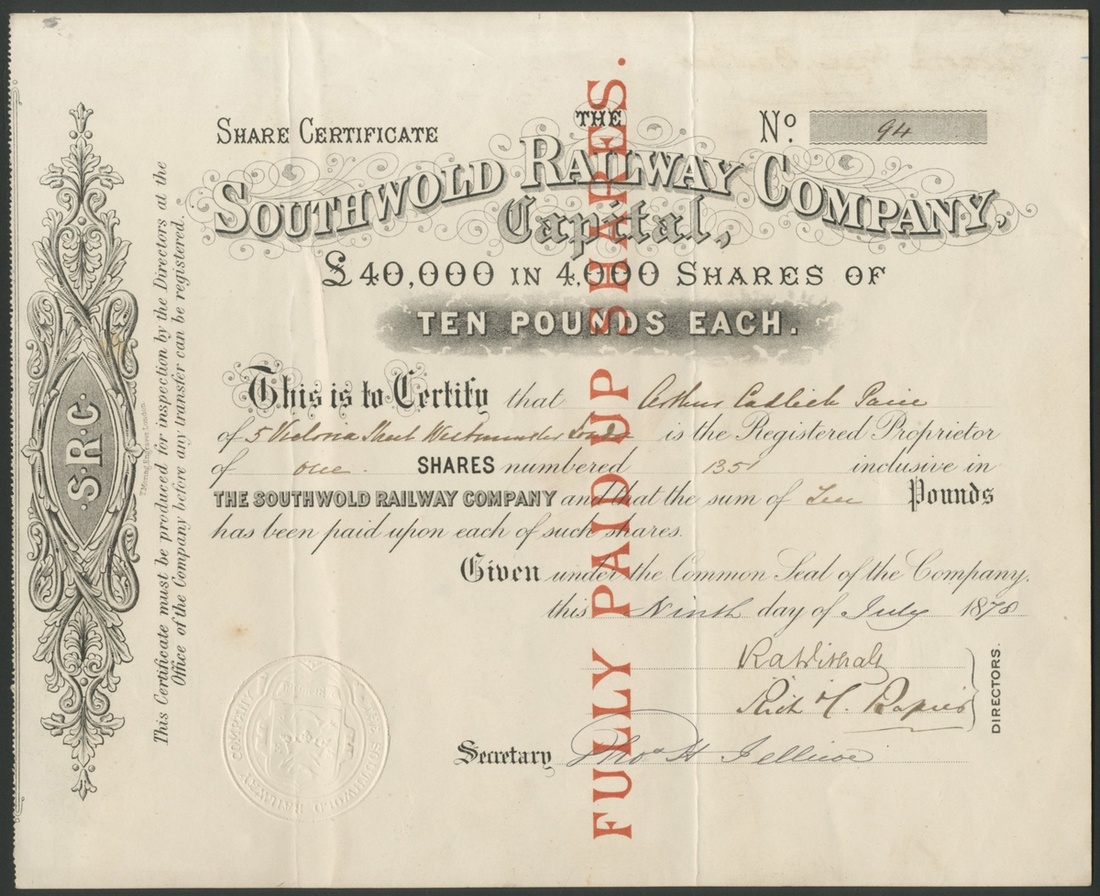 SHARE CERTIFICATE
No. 94
THE
SOUTHWOLD RAILWAY COMPANY,
Capital,
£40,000 IN 4,000 SHARES OF
TEN POUNDS EACH.
This is to Certify that Arthur Pain
of 5 Victoria Street Westminster London is the Registered Proprietor
of one. SHARES numbered 1351 inclusive in
THE SOUTHWOLD RAILWAY COMPANY and that the sum of Ten Pounds
has been paid upon each of such shares.
Given under the Common Seal of the Company,
this Ninth day of July 1878
Rich C. Rapier
DIRECTORS.
Secretary Thos H Jellicoe
FULLY PAID UP SHARES.
·S·R·C·
This Certificate must be produced for inspection by the Directors at the
Office of the Company before any transfer can be registered.
THE SOUTHWOLD RAILWAY COMPANY